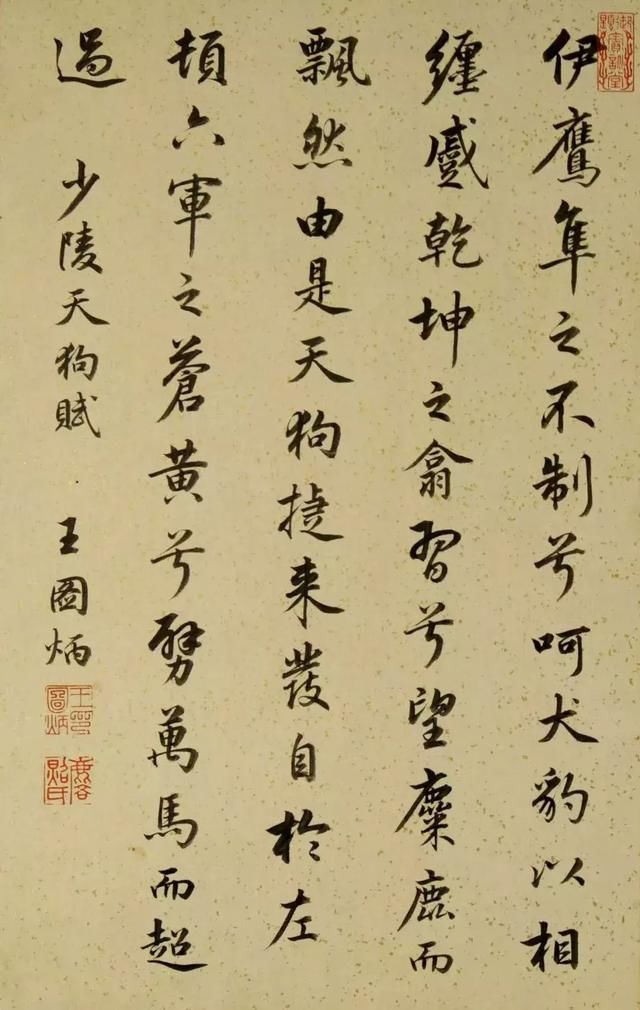 伊鷹隼之不制兮呵犬豹以相
纏蹙乾坤之翕習兮望麋鹿而
飄然由是天狗捷来發自於左
頓六軍之蒼黃兮劈萬馬而超
過
少陵天狗賦
王圖炳
王印圖炳